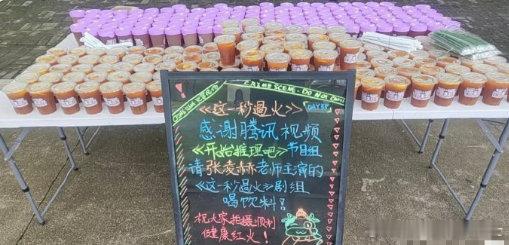 CRIME SCENE. DO NOT
《这一秒过火》
DAY87
感谢腾讯视频
《开始推理吧》节目组
请张凌赫老师主演的
《这一秒过火》剧组
喝饮料!
祝大家拍摄顺利
健康红火!